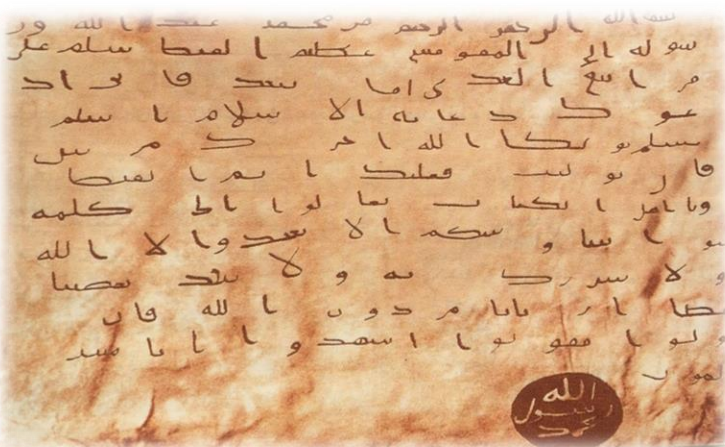 بسم الله الرحمن الرحيم من محمد عبد الله ور
سوله إلى المقوقس عظيم القبط سلم على
من اتبع الهدى اما بعد فانى اد
عوك بدعاية الاسلام اسلم
تسلم يوتك الله اجرك مرتين
فان توليت فعليك اثم القبط
ويا اهل الكتاب تعالوا الى كلمه
سوا بيننا وبينكم الا نعبد الا الله
ولا نشرك به ولا يتخذ بعضنا
بعضا اربابا من دون الله فان
تولوا فقولوا اشهدوا بانا مسـ
لمون
الله
رسول
محمد